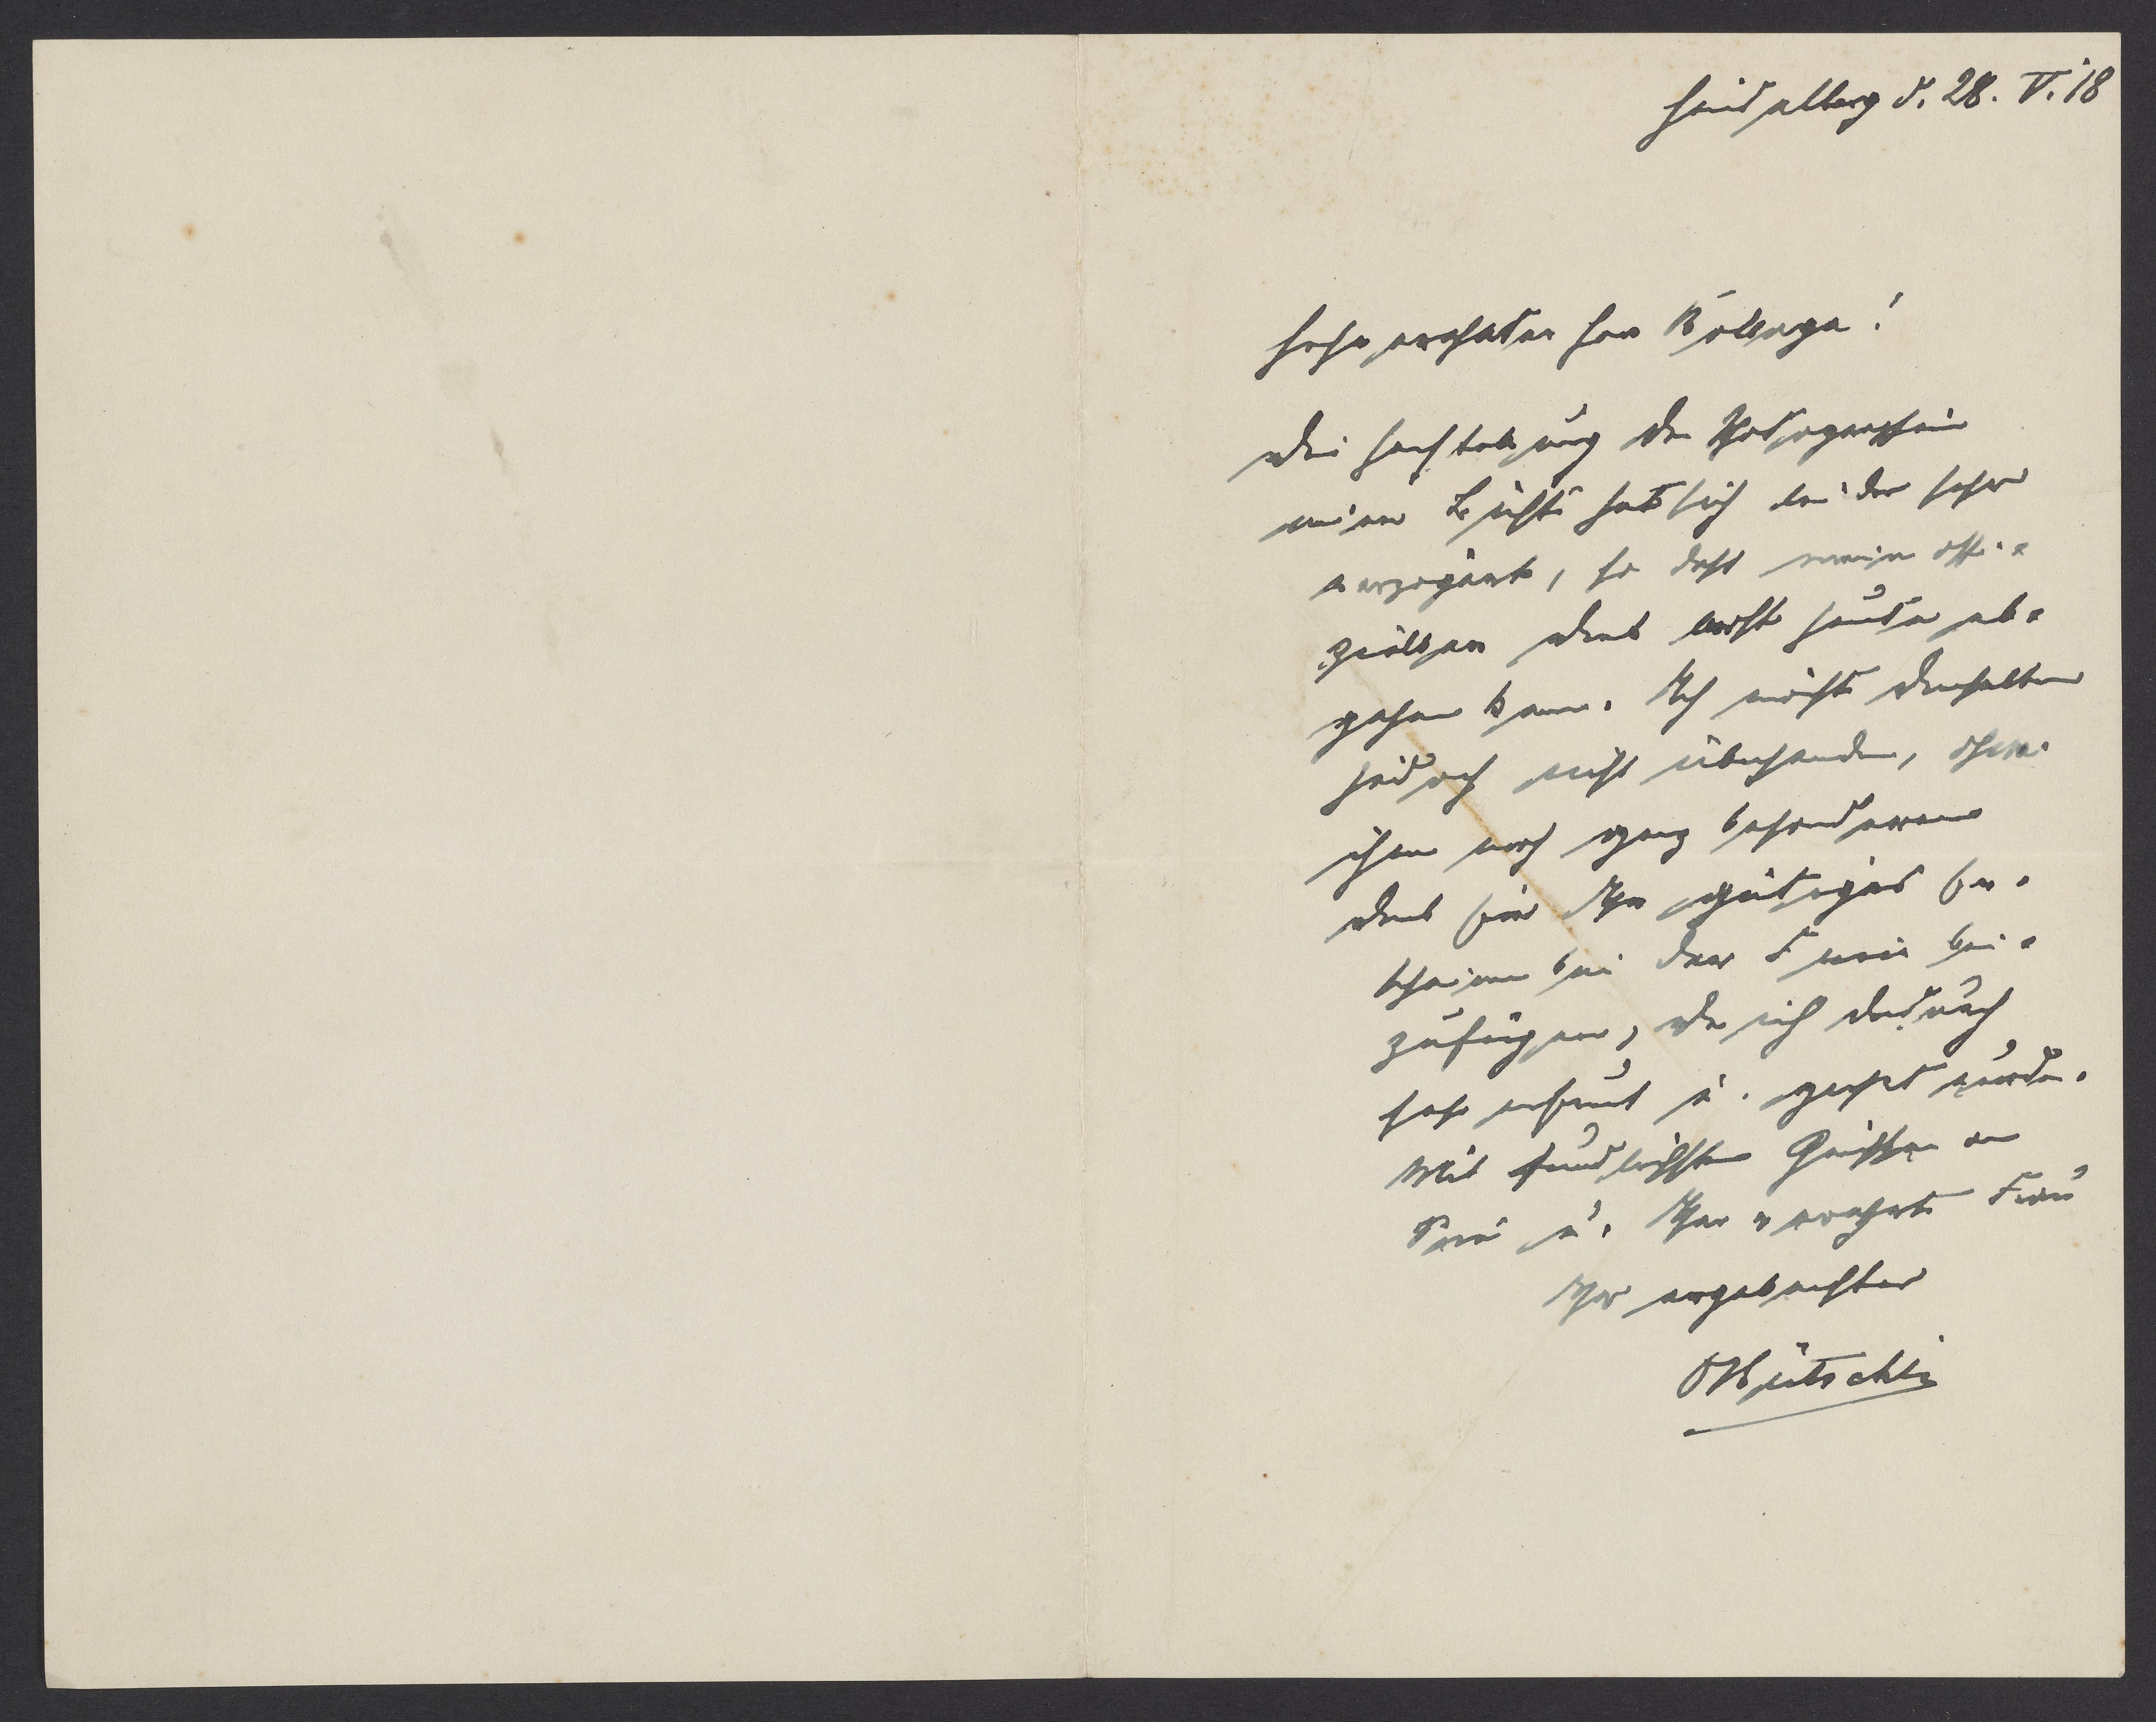 Heidelberg d. 28. V. 18
Sehr geehrter Herr Kollege!
Die Herstellung der Photographie
meiner Büste hat sich leider sehr
verzögert, so dass mein offi-
zieller Dank erst heute ab-
gehen kann. Ich möchte denselben
jedoch nicht übersenden, ohne
ihm noch ganz besonderen
Dank für Ihr gütiges Er-
scheinen bei der Feier bei-
zufügen, da ich dadurch
sehr erfreut u. geehrt wurde.
Mit freundlichsten Grüssen an
Sie u. Ihre verehrte Frau
Ihr ergebenster
O Bütschli